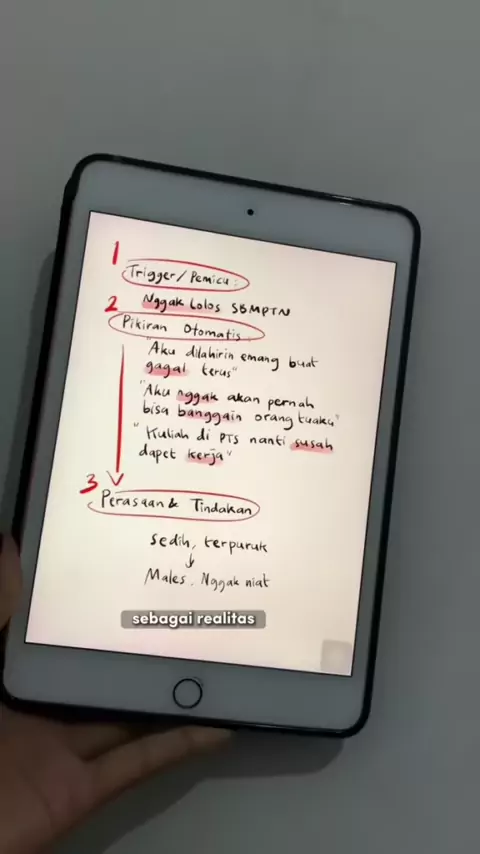 1
Trigger/Pemicu :
2 Nggak Lolos SBMPTN
Pikiran Otomatis :
"Aku dilahirin emang buat
gagal terus"
"Aku nggak akan pernah
bisa banggain orang tuaku"
"Kuliah di PTS nanti susah
dapet kerja"
3
Perasaan & Tindakan
Sedih, terpuruk
Males. Nggak niat
sebagai realitas